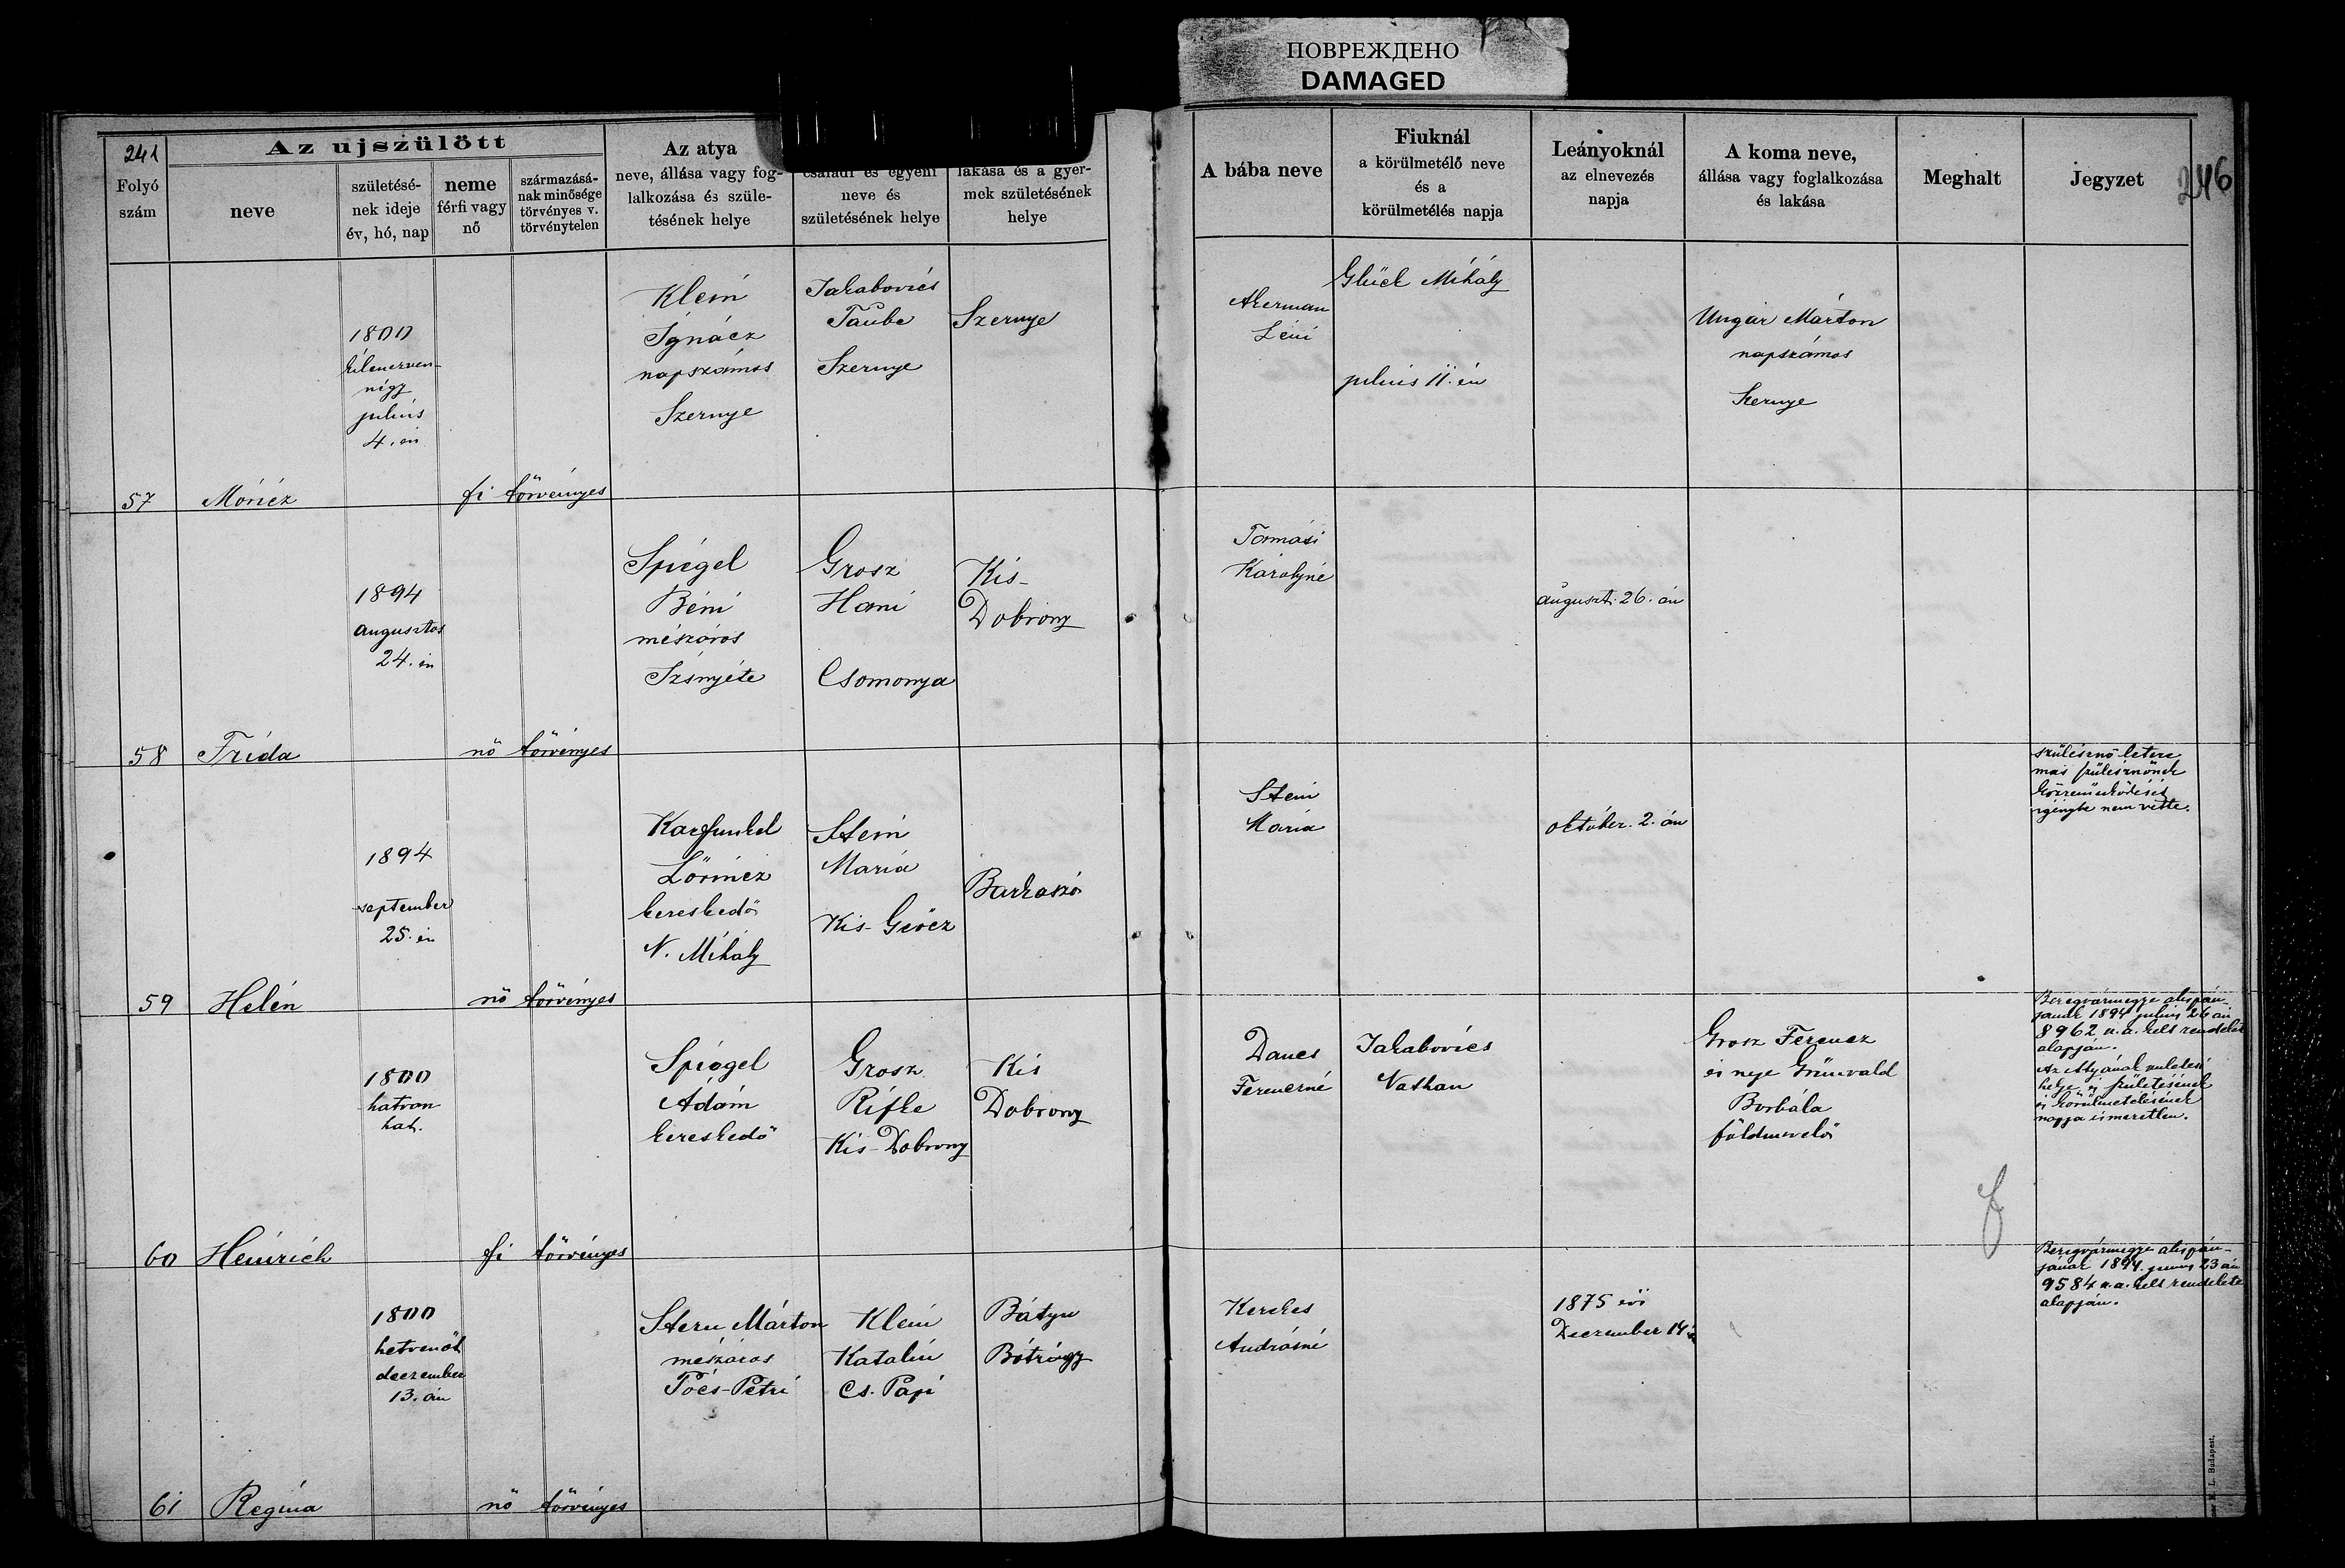 ПОВРЕЖДЕНО
DAMAGED
241
Folyó
szám
Az ujszülött
neve
születésé-
nek ideje
év, hó, nap
neme
férfi vagy
nő
származásá-
nak minősége
törvényes v.
törvénytelen
Az atya
neve, állása vagy fog-
lalkozása és szüle-
tésének helye
családi és egyéni
neve és
születésének helye
lakása és a gyer-
mek születésének
helye
A bába neve
Fiuknál
a körülmetélő neve
és a
körülmetélés napja
Leányoknál
az elnevezés
napja
A koma neve,
állása vagy foglalkozása
és lakása
Meghalt
Jegyzet
246
57
Móricz
1800
kilenczven-
négy
julius
4. én
fi
törvényes
Klein
Ignácz
napszámos
Szernye
Jakabovics
Taube
Szernye
Szernye
Akerman
Léni
Glück Mihály
julius 11. én
Ungár Márton
napszámos
Szernye
58
Frida
1894
augusztos
24. én
nő
törvényes
Spiegel
Béni
mészáros
Grosz
Hani
Csomonya
Kis-
Dobrony
Tamási
Károlyné
auguszt. 26. án
59
Helén
1894
september
25. én
nő
törvényes
Karfunkel
Lőrincz
kereskedő
N. Mihály
Stein
Mária
Kis-Geöcz
Barkaszó
Stein
Mária
október. 2. án
szülésznő létere
más szülésznőnek
közreműködését
igénybe nem vette.
60
Heinrich
1800
hatvan
hat.
fi
törvényes
Spiegel
Ádám
kereskedő
Grosz
Rifke
Kis-Dobrony
Kis
Dobrony
Dancs
Ferenczné
Jakabovics
Nathan
Grosz Ferencz
és neje Grünvald
Borbála
földmivelő
Beregvármegye alispán-
jának 1894 julius 26 án
8962 a. a. kelt rendelete
alapján.
Az Atyának születési
helye és születésének
és körülmetélésének
napja ismeretlen.
61
Regina
1800
hetvenöt
deczember
13. án
nő
törvényes
Stern Márton
mészáros
Pócs-Petri
Klein
Katalin
Cs. Papi
Bátyu
Bótrágy
Kerekes
Andrásné
1875 évi
Deczember 14
Beregvármegye alispán-
jának 1894. junius 23 án
9584 a. a. kelt rendelete
alapján.